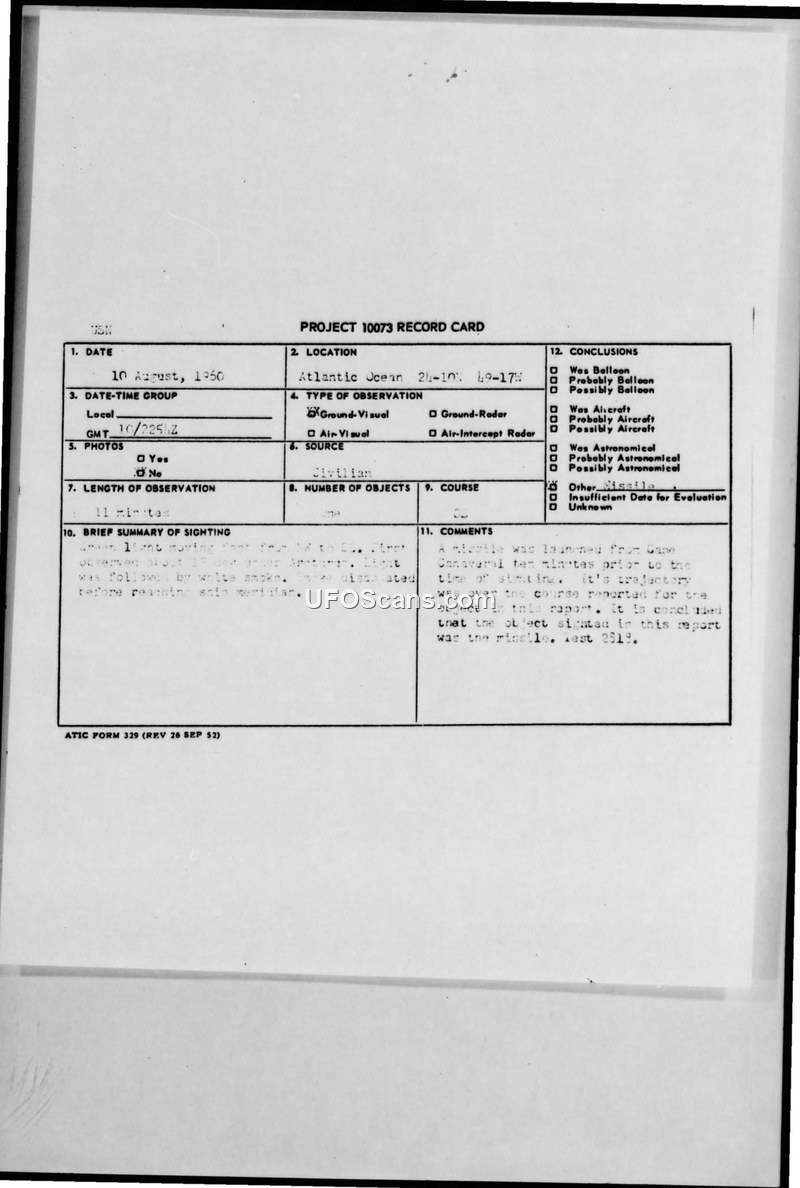 PROJECT 10073 RECORD CARD
1. DATE
10 August, 1960
2. LOCATION
Atlantic Ocean 24-10N 49-17W
12. CONCLUSIONS
Was Balloon
Probably Balloon
Possibly Balloon
Was Aircraft
Probably Aircraft
Possibly Aircraft
Was Astronomical
Probably Astronomical
Possibly Astronomical
Other Missile
Insufficient Data for Evaluation
Unknown
3. DATE-TIME GROUP
Local
GMT 10/2254Z
4. TYPE OF OBSERVATION
Ground-Visual
Ground-Radar
Air-Visual
Air-Intercept Radar
5. PHOTOS
Yes
No
6. SOURCE
Civilian
7. LENGTH OF OBSERVATION
11 minutes
8. NUMBER OF OBJECTS
one
9. COURSE
SE
10. BRIEF SUMMARY OF SIGHTING
Green light moving fast from NW to SE. First
observed about under Arcturus. Light
was followed by white smoke. Smoke dissipated
before reaching ship meridian.
11. COMMENTS
A missile was launched from Cape
Canaveral ten minutes prior to the
time of sighting. It's trajectory
was over the course reported for the
object in this report. It is concluded
that the object sighted in this report
was the missile. Test
UFOScans.com
ATIC FORM 329 (REV 26 SEP 52)